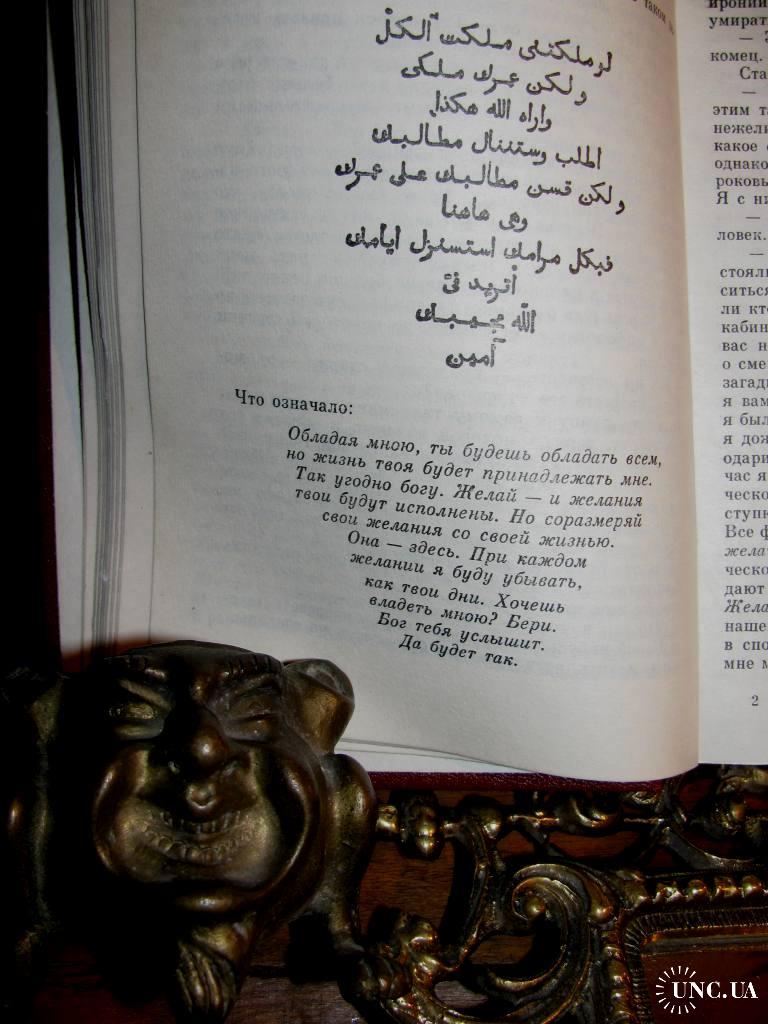 таком
لو ملكتنى ملكت آلكل
و لكن عمرك ملكى
واراه الله هكذا
اطلب وستننال مطالبك
ولكن قسن مطالبك على عمرك
وهى هاهنا
فبكل مرامك استسنزل ايامك
أتريد فى
الله مجيبك
آمين
Что означало:
Обладая мною, ты будешь обладать всем,
но жизнь твоя будет принадлежать мне.
Так угодно богу. Желай — и желания
твои будут исполнены. Но соразмеряй
свои желания со своей жизнью.
Она — здесь. При каждом
желании я буду убывать,
как твои дни. Хочешь
владеть мною? Бери.
Бог тебя услышит.
Да будет так.
ирони
умират
—
комец.
Ста
—
этим та
нежели
какое
однако
роковы
Я с ни
—
ловек.
—
стояли
ситься
ли кто
кабин
вас н
о сме
загад
я вам
я был
я дол
одари
час я
ческо
ступк
Все ф
жела
ческо
дают
Жела
наше
в спо
мне м
2
UNC.UA